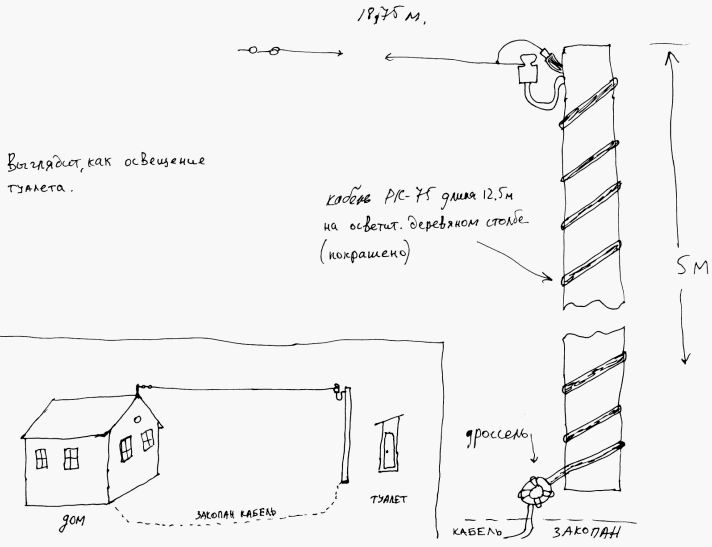 18,75 м.
Выглядит, как освещение
туалета.
кабель РК-75 длина 12,5м
на осветит. деревяном столбе
(покрашено)
5 м
дроссель
КАБЕЛЬ ЗАКОПАН
ДОМ
ЗАКОПАН КАБЕЛЬ
ТУАЛЕТ